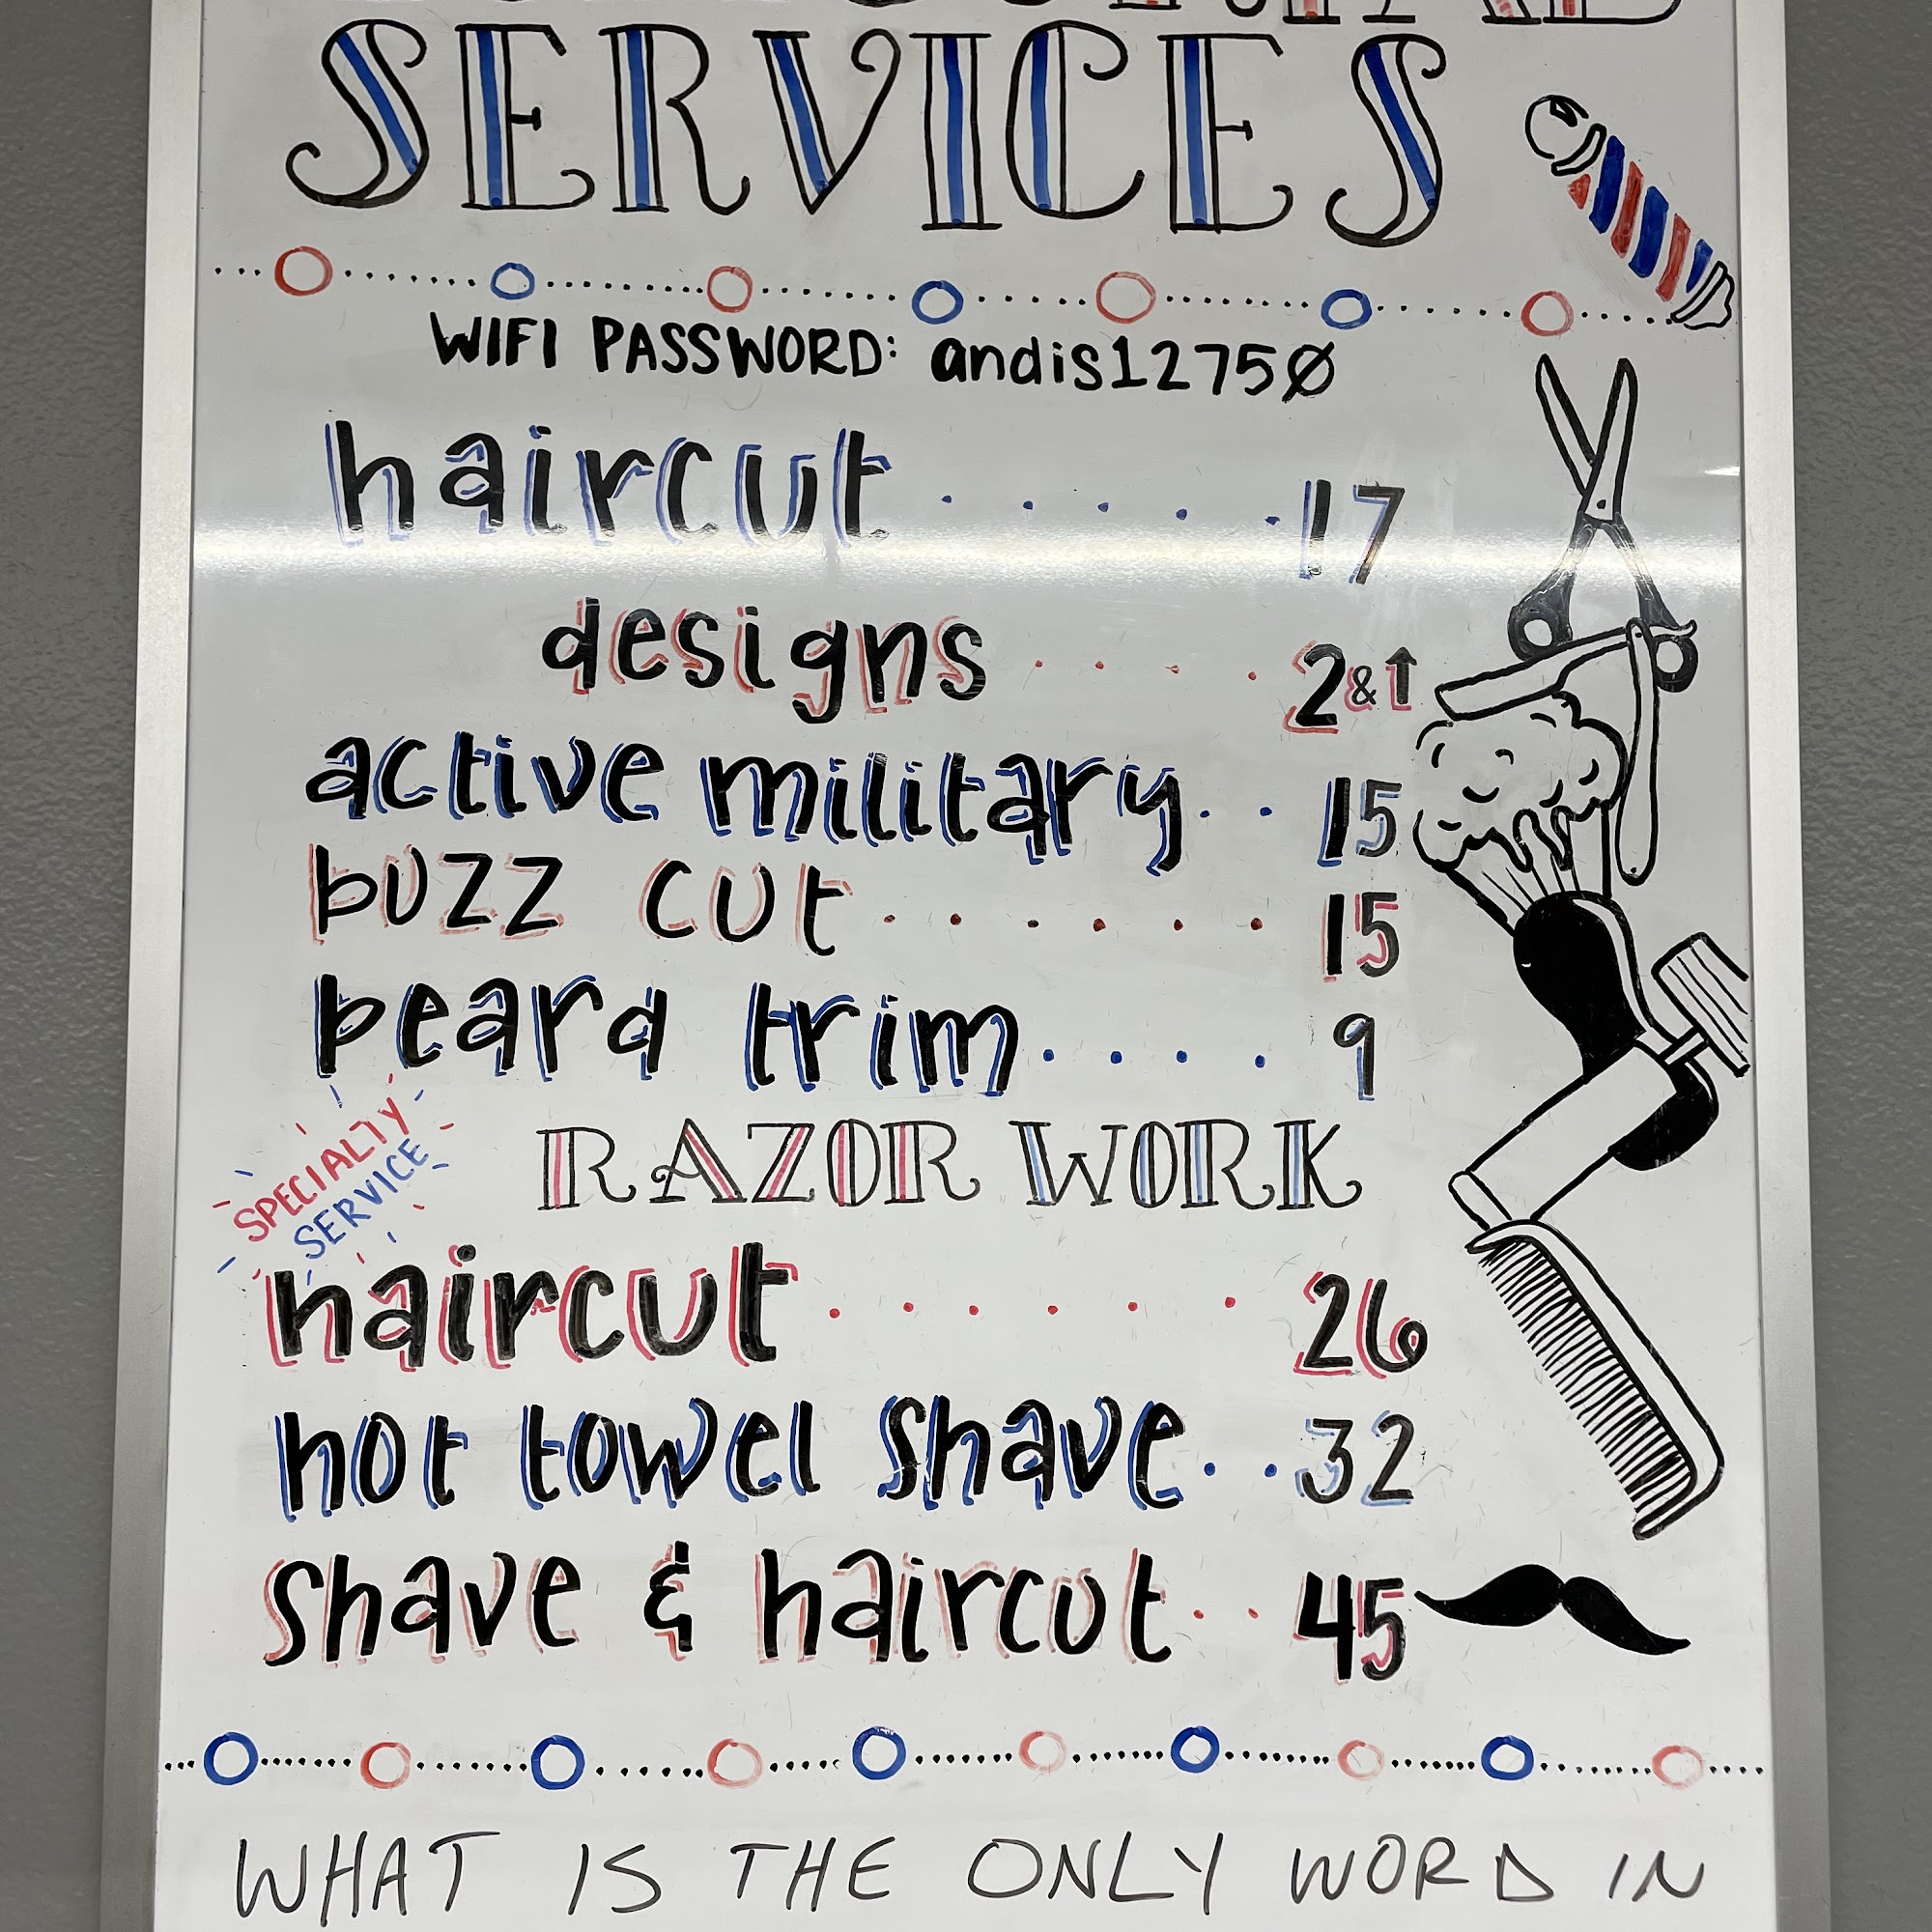 SERVICES
WIFI PASSWORD: andis12750
haircut ..... 17
designs .... 2 & ↑
active military .. 15
buzz cut ...... 15
beard trim .... 9
SPECIALTY
SERVICE
RAZOR WORK
haircut ...... 26
hot towel shave .. 32
shave & haircut .. 45
WHAT IS THE ONLY WORD IN